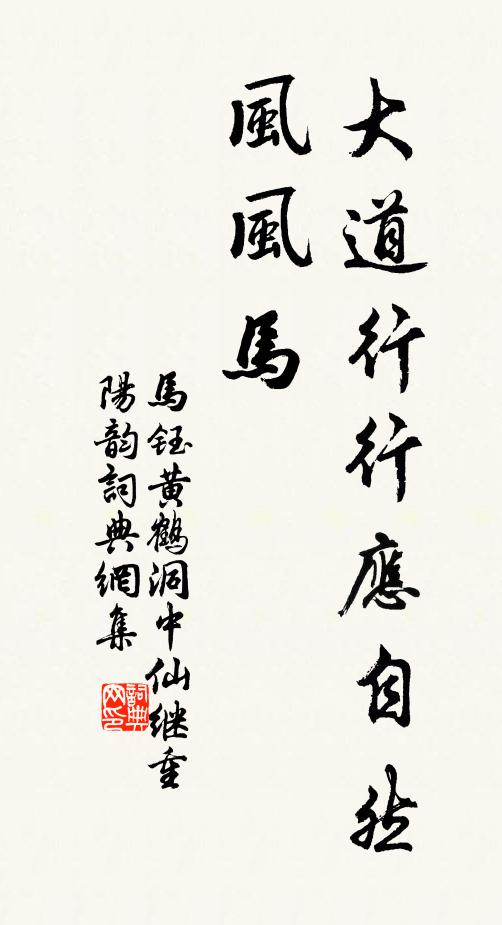 大道行行應自然
風風馬
馬鈺黄鶴洞中仙继重
陽韵詞典網集
詞典
网印